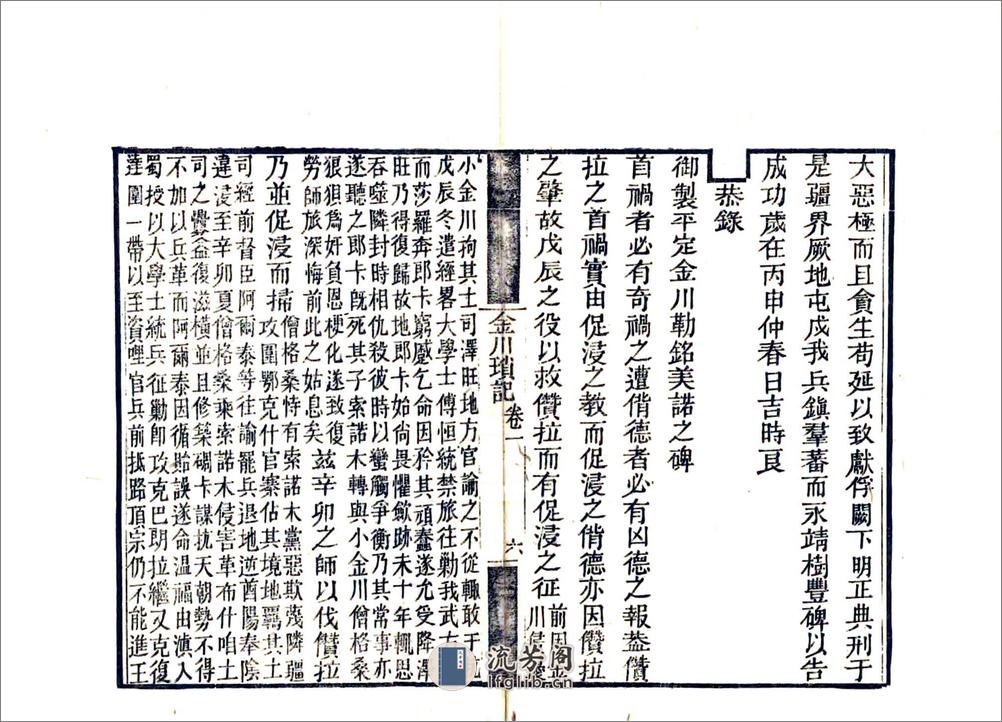 大惡極而且貪生苟延以致獻俘闕下明正典刑于
是疆界厥地屯戍我兵鎮羣蕃而永靖樹豐碑以告
成功歲在丙申仲春日吉時良
恭錄
御製平定金川勒銘美諾之碑
首禍者必有奇禍之遭偝德者必有凶德之報蓋儹
拉之首禍實由促浸之教而促浸之偝德亦因儹拉
之肇故戊辰之役以救儹拉而有促浸之征
前因
川侵
金川瑣記
卷一
六
小金川拘其土司澤旺地方官諭之不從輒敢于
戊辰冬遣經畧大學士傅恒統禁旅往勦我武
而莎羅奔郎卡窮蹙乞命因矜其頑蠢遂允受降澤
旺乃得復歸故地郎卡始尚畏懼歛跡未十年輒思
吞噬隣封時相仇殺彼時以蠻觸爭衡乃其常事亦
遂聽之郎卡旣死其子索諾木轉與小金川僧格桑
狼狽爲奸負恩梗化遂致復
勞師旅深悔前此之姑息矣
茲辛卯之師以伐儹拉
乃並促浸而掃
僧格桑恃有索諾木黨惡欺蔑隣疆
攻圍鄂克什官寨佔其境地羈其土
司經前督臣阿爾泰等往諭罷兵退地逆酋陽奉陰
違浸至辛卯夏僧格桑乘索諾木侵害革布什咱土
司之釁益復滋橫並且修築碉卡謀抗天朝勢不得
不加以兵革而阿爾泰因循貽誤遂命溫福由滇入
蜀授以大學士統兵征勦卽攻克巴朗拉繼又克復
達圍一帶以至資哩官兵前抵路頂宗仍不能進王
流芳閣
lfglib.cn